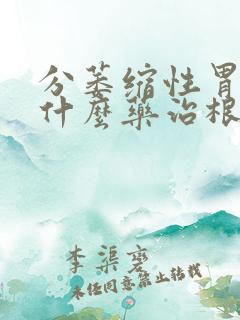 分萎缩性胃
什麽藥治根
李渠
未任同意禁止转载